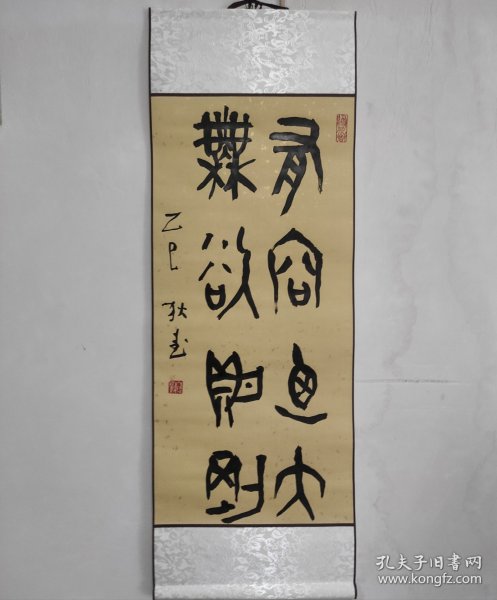 有容迺大
無欲則剛
乙巳 耿春
孔夫子旧书网
www.kongfz.com